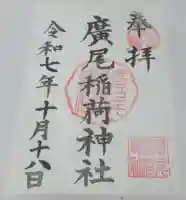 奉拝
廣尾稲荷神社
令和七年十月十八日